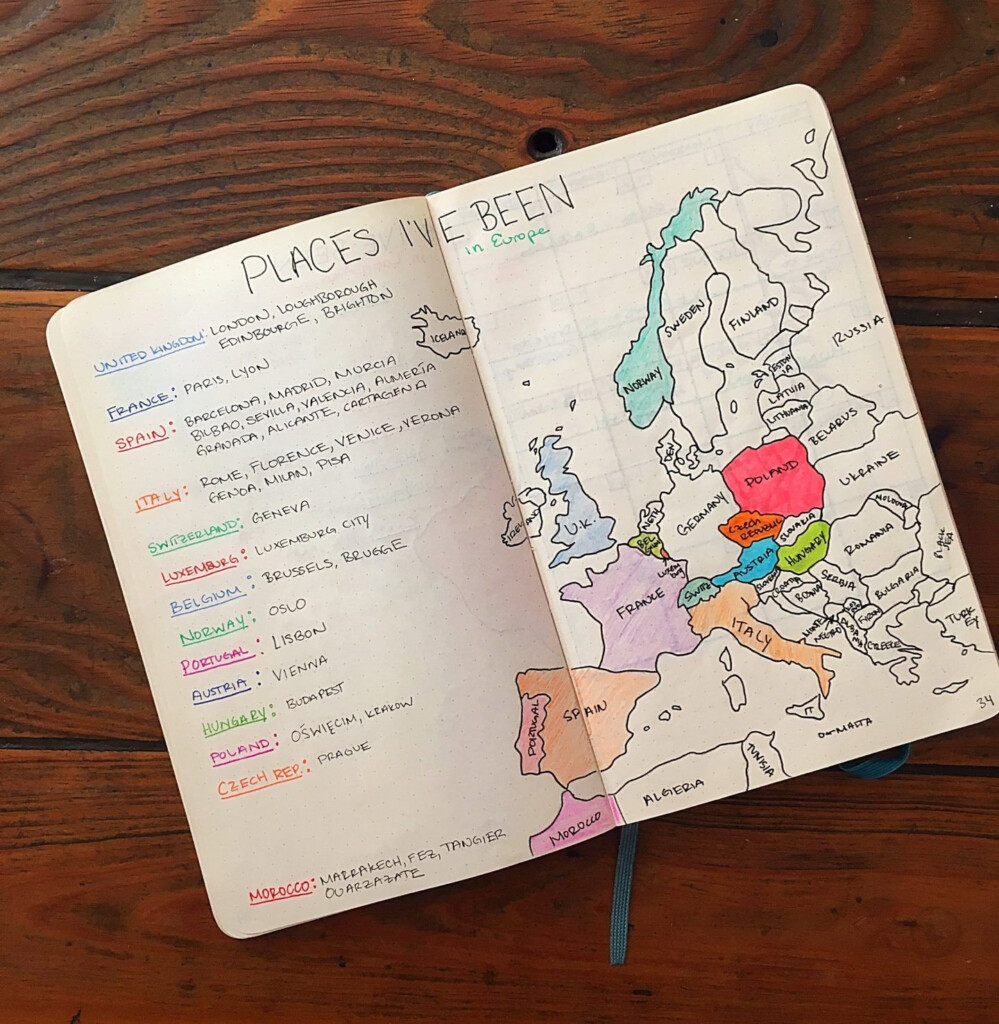 PLACES I'VE BEEN
in Europe
UNITED KINGDOM: LONDON, LOUGHBOROUGH
EDINBOURGE, BRIGHTON
FRANCE: PARIS, LYON
SPAIN: BARCELONA, MADRID, MURCIA
BILBAO, SEVILLA, VALENCIA, ALMERÍA
GRANADA, ALICANTE, CARTAGENA
ITALY: ROME, FLORENCE, VENICE, VERONA
GENOA, MILAN, PISA
SWITZERLAND: GENEVA
LUXEMBURG: LUXEMBURG CITY
BELGIUM: BRUSSELS, BRUGGE
NORWAY: OSLO
PORTUGAL: LISBON
AUSTRIA: VIENNA
HUNGARY: BUDAPEST
POLAND: OŚWIĘCIM, KRAKOW
CZECH REP.: PRAGUE
MOROCCO: MARRAKECH, FEZ, TANGIER
OUARZAZATE
ICELAND
NORWAY
SWEDEN
FINLAND
RUSSIA
ESTON
IA
LATVIA
LITHUANIA
BELARUS
DEN
IRELAND
U.K.
NETH
BEL
GIUM
LUXEM
BURG
GERMANY
POLAND
CZECH
REPUBLIC
SLOVAKIA
UKRAINE
MOLDOVA
AUSTRIA
HUNGARY
ROMANIA
FRANCE
SWITZ
SLOVENIA
CROATIA
BOSNIA
SERBIA
BULGARIA
BLACK
SEA
ITALY
MONTE
NEGRO
ALBA
NIA
GREECE
TURK
EY
PORTUGAL
SPAIN
IT
MALTA
MOROCCO
ALGERIA
TUNISIA
34